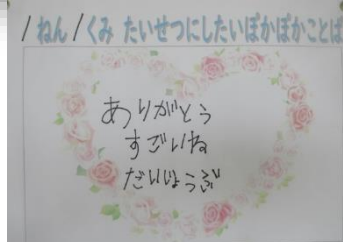 1ねん1くみ たいせつにしたいぽかぽかことば
ありがとう
すごいね
だいじょうぶ